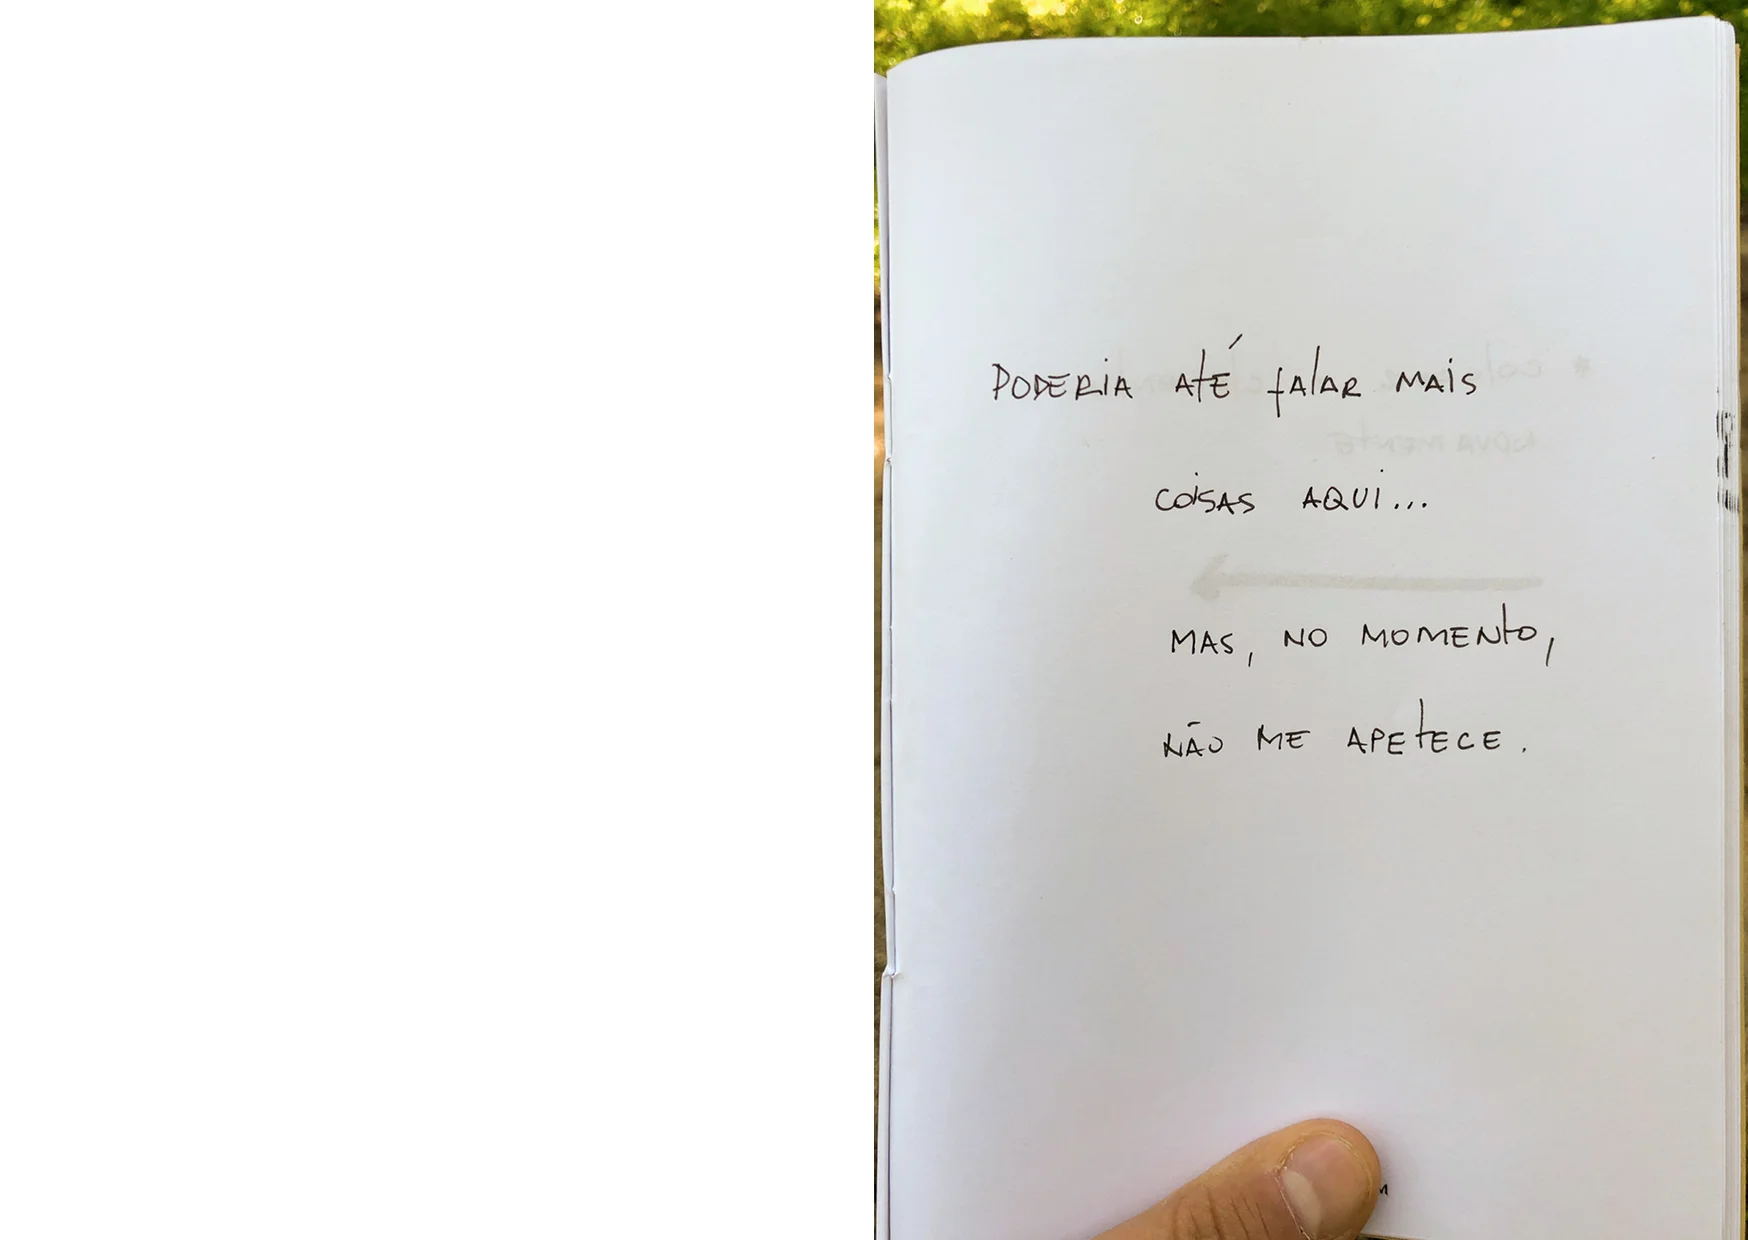 PODERIA ATÉ fALAR MAIS
COISAS AQUI...
MAS, NO MOMENTO,
NÃO ME APETECE.